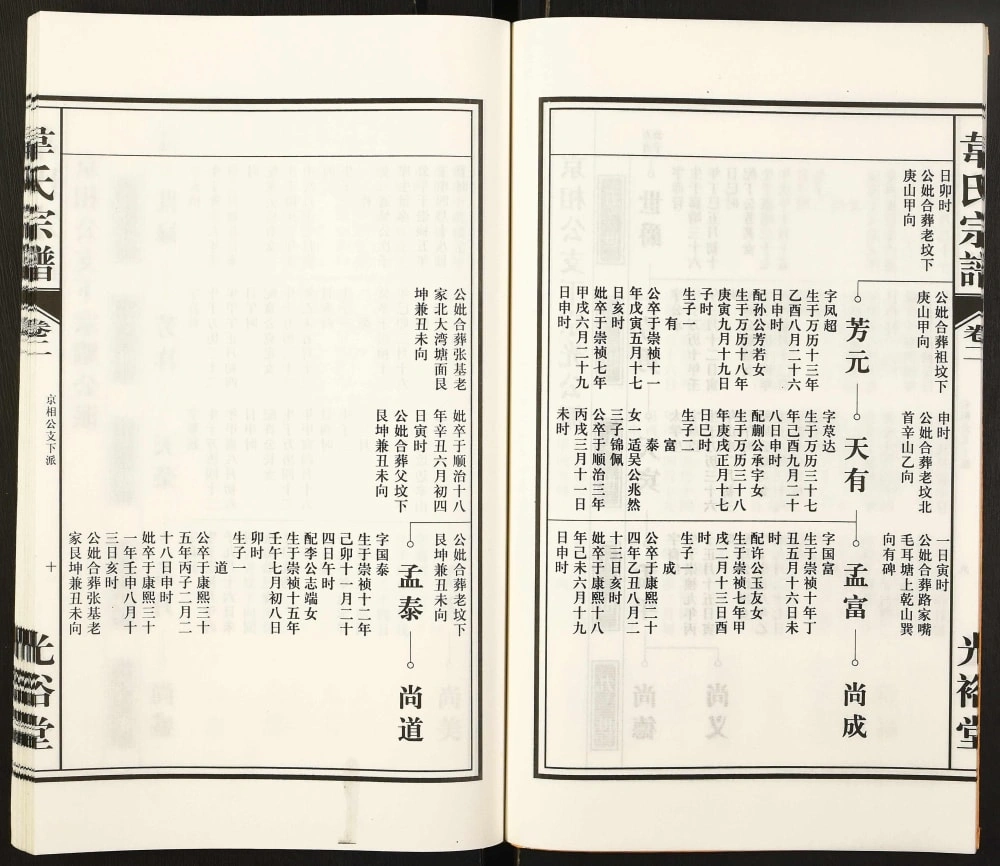 韋氏宗譜
卷二
光裕堂
日卯时
公妣合葬老坟下
庚山甲向
公妣合葬祖坟下
庚山甲向
芳元
字凤超
生于万历十三年
乙酉八月二十六
日申时
配孙公芳若女
生于万历十八年
庚寅九月十九日
子时
生子一
有
公卒于崇祯十一
年戊寅五月十七
日亥时
妣卒于崇祯七年
甲戌六月二十九
日申时
申时
公妣合葬老坟北
首辛山乙向
天有
字荩达
生于万历三十七
年己酉九月二十
八日申时
配蒯公承宇女
生于万历三十八
年庚戌正月十七
日巳时
生子二
富
泰
女一适吴公兆然
三子锦佩
公卒于顺治三年
丙戌三月十一日
未时
一日寅时
公妣合葬路家嘴
毛耳塘上乾山巽
向有碑
孟富
尚成
字国富
生于崇祯十年丁
丑五月十六日未
时
配许公玉友女
生于崇祯七年甲
戌二月十三日酉
时
生子一
成
公卒于康熙二十
四年乙丑八月二
十三日亥时
妣卒于康熙十八
年己未六月十九
日申时
公妣合葬张基老
家北大湾塘面艮
坤兼丑未向
妣卒于顺治十八
年辛丑六月初四
日寅时
公妣合葬父坟下
艮坤兼丑未向
公妣合葬老坟下
艮坤兼丑未向
孟泰
尚道
字国泰
生于崇祯十二年
己卯十一月二十
四日午时
配李公志端女
生于崇祯十五年
壬午七月初八日
卯时
生子一
道
公卒于康熙三十
五年丙子二月二
十八日申时
妣卒于康熙三十
一年壬申八月十
三日亥时
公妣合葬张基老
家艮坤兼丑未向
韋氏宗譜
卷二
京相公支下派
十
光裕堂